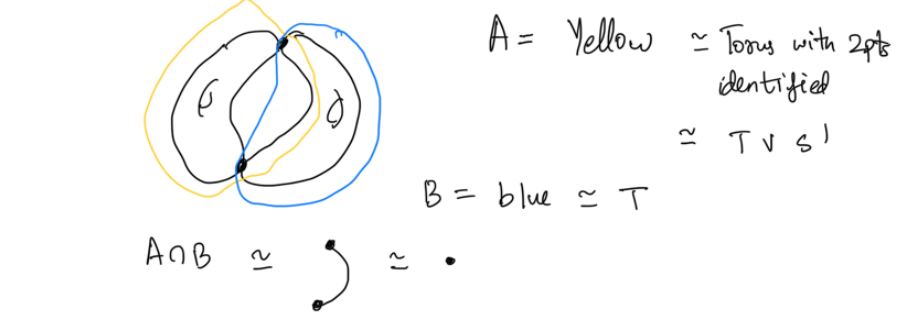 A = Yellow ≃ Torus with 2pts
identified
≃ T ∨ S¹
B = blue ≃ T
A∩B ≃ ≃ •